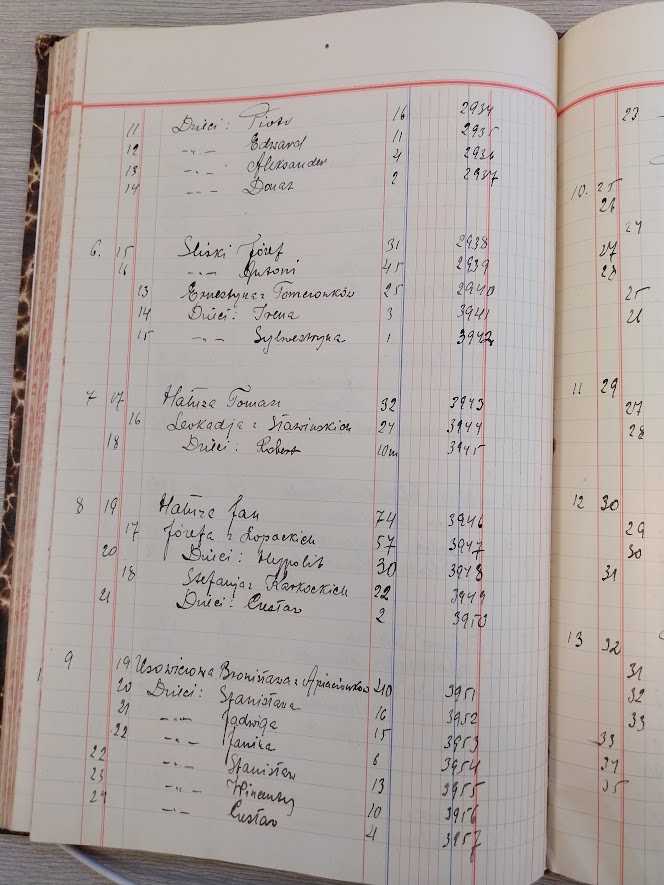 11 Dzieci: Piotr 16 2934
12 -"- Edward 11 2935
13 -"- Aleksander 4 2936
14 -"- Donat 2 2937
6. 15 Śliski Józef 31 2938
16 -"- Antoni 45 2939
13 Ernestyna z Tomcionków 25 2940
14 Dzieci: Irena 3 3941
15 -"- Sylwestryna 1 3942
7 17 Hałuza Toman 32 3943
16 Leokadja z Sławińskich 24 3944
18 Dzieci: Robert 10m 3945
8 19 Hałuza Jan 74 3946
17 Józefa z Łopackich 57 3947
20 Dzieci: Hypolit 30 3948
18 Stefanja z Karkockich 22 3949
21 Dzieci: Gustaw 2 3950
9 19 Bronisława z 40 3951
20 Dzieci: Stanisława 16 3952
21 -"- Jadwiga 15 3953
22 -"- Janina 6 3954
22 -"- Stanisław 13 2955
23 -"- Wincenty 10 3956
24 -"- Gustaw 4 3957
23
10. 25
26
24
27
28
25
26
11 29
27
28
12 30
29
30
31
13 32
31
32
33
33
34
35